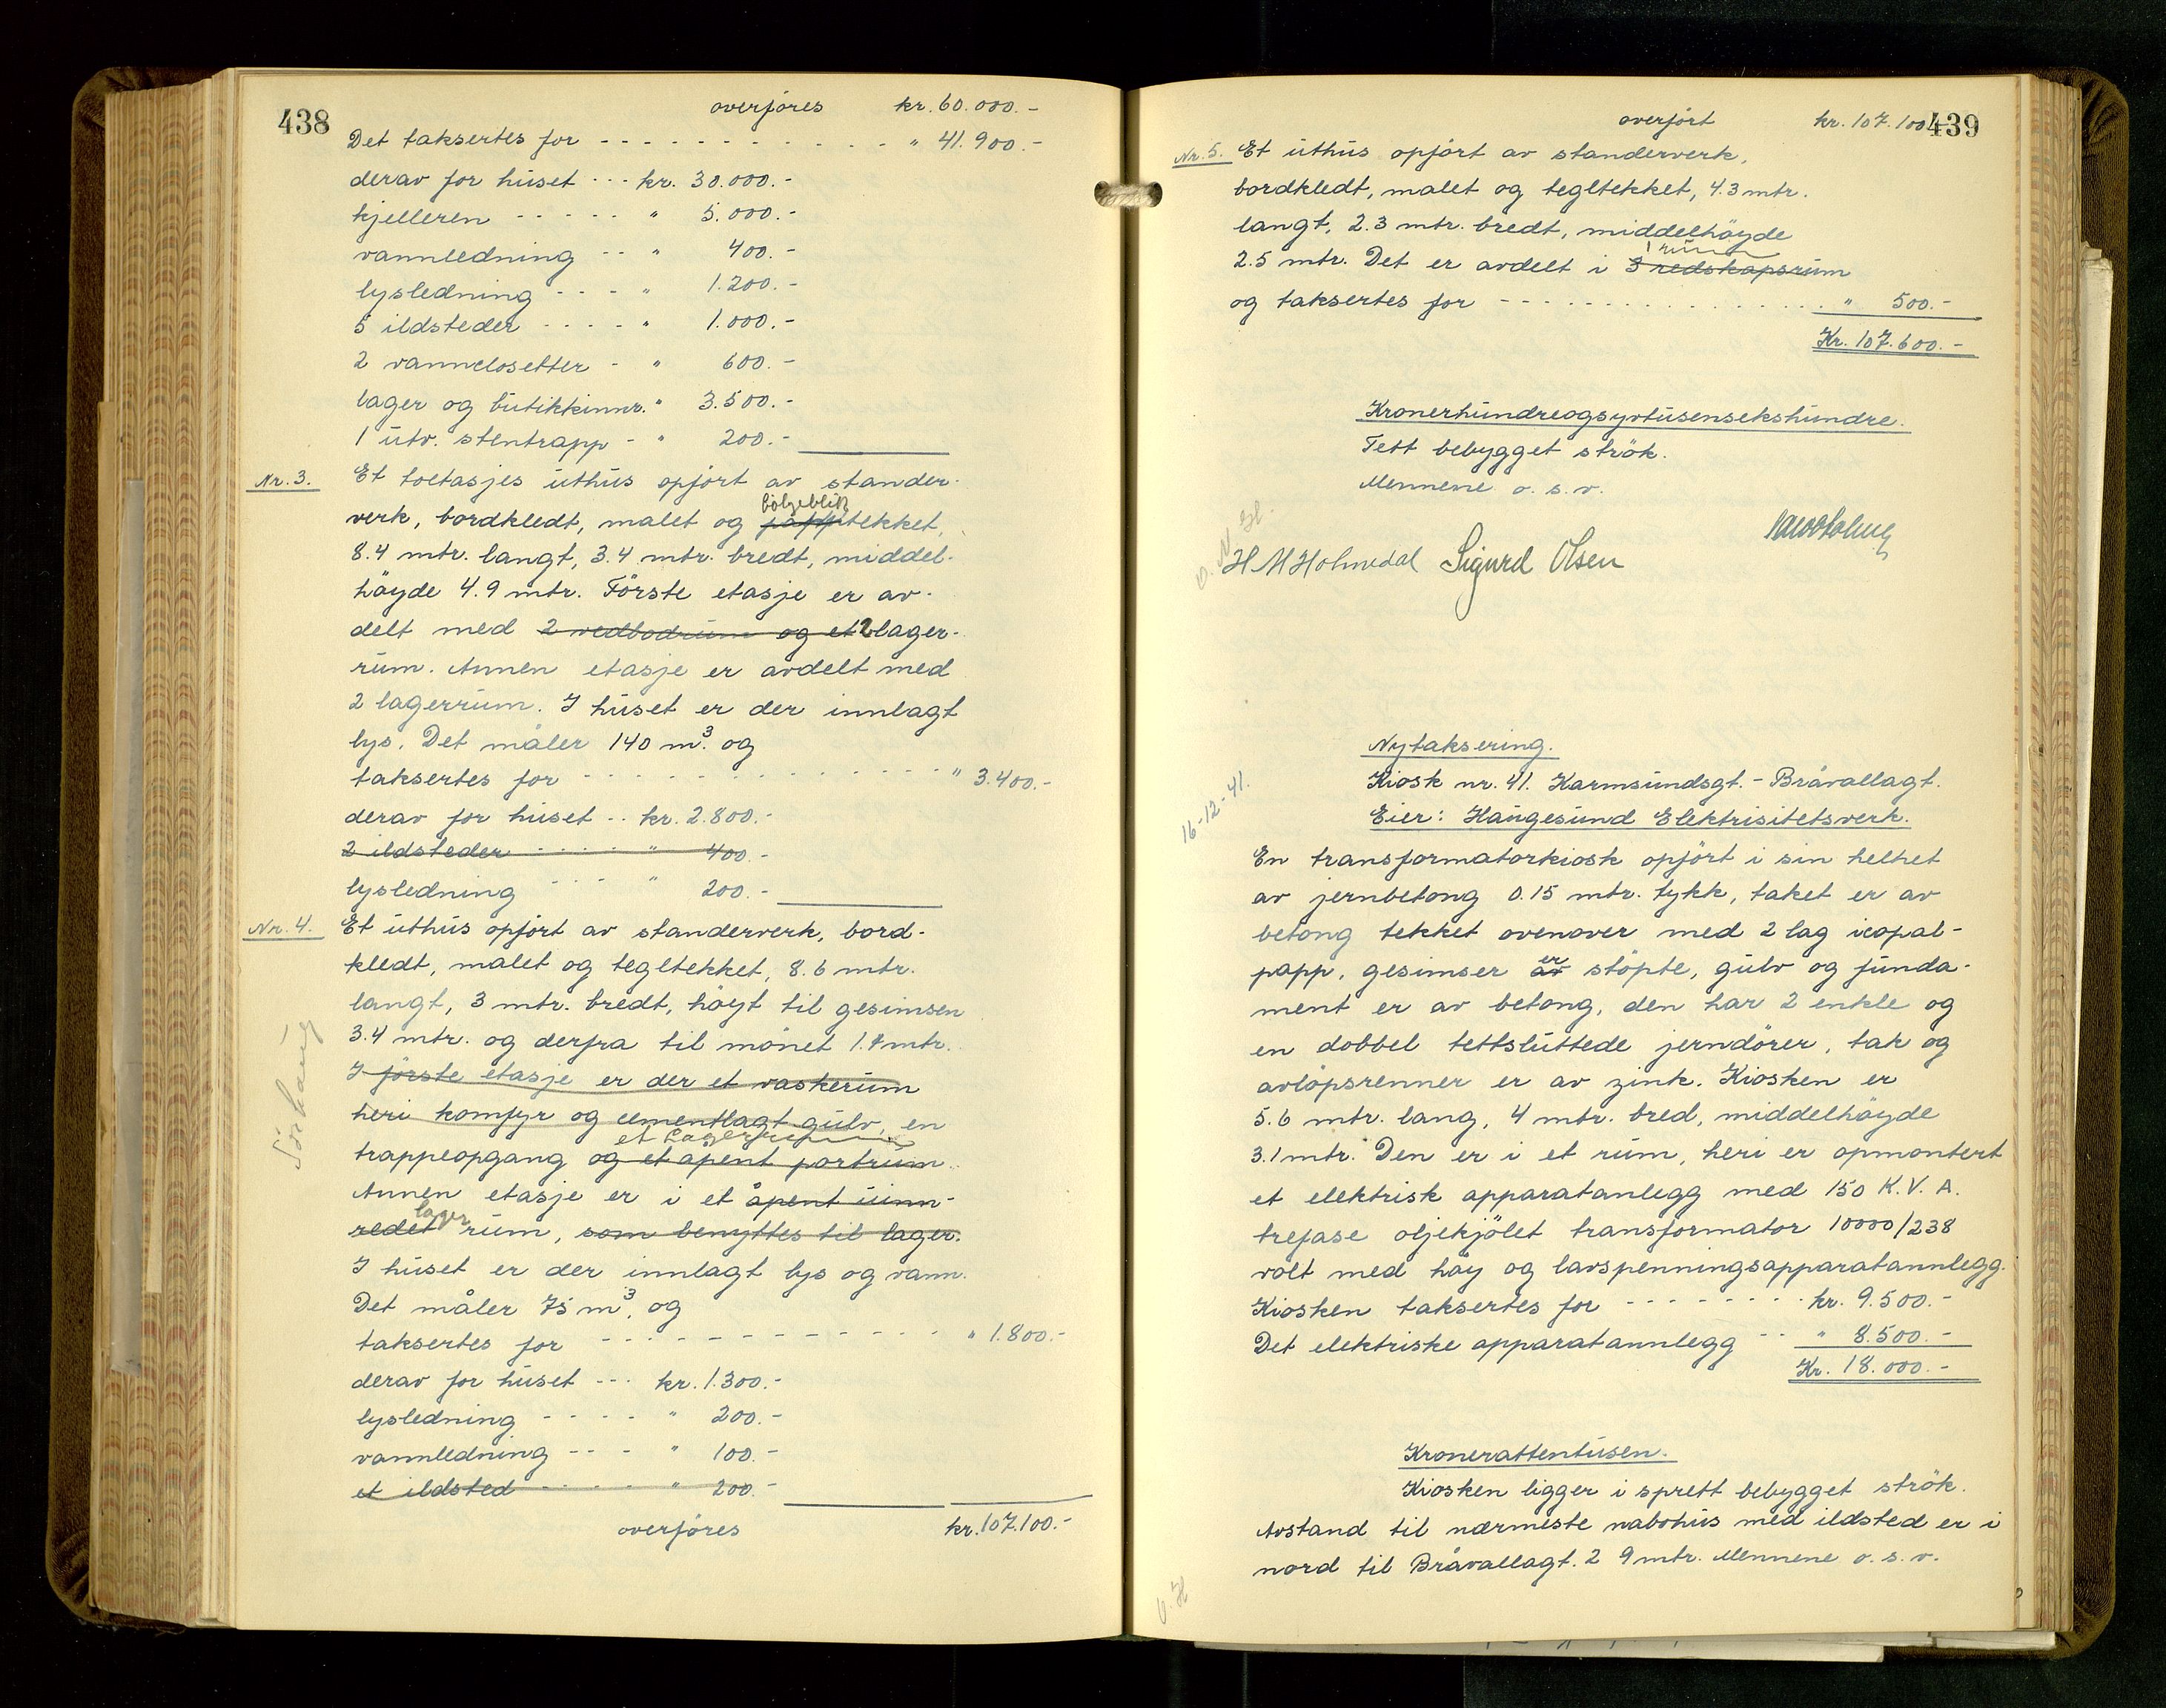 438
overføres kr. 60.000.-
Det taksertes for - - - - - - - - - - - - " 41.900.-
derav for huset - - - kr. 30.000.-
kjelleren - - - - - " 5.000.-
vannledning - - " 400.-
lysledning - - - - " 1.200.-
5 ildsteder - - - - - " 1.000.-
2 vannclosetter - " 600.-
lager og butikkinnr. " 3.500.-
1 utv. stentrapp - " 200.-
Nr. 3. Et toetasjes uthus opført av stander-
bölgeblikk
verk, bordkledt, malet og papptekket,
8.4 mtr. langt, 3.4 mtr. bredt, middel-
höyde 4.9 mtr. Förste etasje er av-
delt med 2 vedbodrum og et 2 lager-
rum. Annen etasje er avdelt med
2 lagerrum. I huset er der innlagt
lys. Det måler 140 m³. og
taksertes for - - - - - - - - - - - - - " 3.400.-
derav for huset - - kr. 2.800.-
2 ildsteder - - - - - " 400.-
lysledning - - - " 200.-
Nr. 4. Et uthus opført av standerverk, bord-
kledt, malet og tegltekket, 8.6 mtr.
langt, 3 mtr. bredt, höyt til gesimsen
3.4 mtr. og derfra til mönet 1.7 mtr.
I förste etasje er der et vaskerum
heri komfyr og cementlagt gulv, en
et lagerrum
trappeopgang og et apent portrum.
Annen etasje er i et åpent uinn-
lager
redet rum, som benyttes til lager.
I huset er der innlagt lys og vann.
Det måler 75 m³. og
taksertes for - - - - - - - - - - - - " 1.800.-
derav for huset - - - kr. 1.300.-
lysledning - - - - " 200.-
vannledning - - - " 100.-
et ildsted - - - - - " 200.-
overføres kr. 107.100.-
439
overført kr. 107.100.-
Nr. 5. Et uthus opført av standerverk,
bordkledt, malet og tegltekket, 4.3 mtr.
langt, 2.3 mtr. bredt, middelhöyde
1 rum
2.5 mtr. Det er avdelt i 3 redskapsrum
og taksertes for - - - - - - - - - - - - - - " 500.-
Kr. 107.600.-
Kronerhundreogsyvtusensekshundre.
Tett bebygget strök.
Mennene o. s. v.
H M Holmedal Sigurd Olsen
Nytaksering.
16-12-41.
Kiosk nr. 41. Karmsundsgt. - Bråvallagt.
Eier: Haugesund Elektrisitetsverk.
En transformatorkiosk opfört i sin helhet
av jernbetong 0.15 mtr. tykk, taket er av
betong tekket ovenover med 2 lag icopal-
er
papp, gesimser av stöpte, gulv og funda-
ment er av betong, den har 2 enkle og
en dobbel tettsluttede jerndörer, tak og
avlöpsrenner er av zink. Kiosken er
5.6 mtr. lang, 4 mtr. bred, middelhöyde
3.1 mtr. Den er i et rum, heri er opmontert
et elektrisk apparatanlegg med 150 K.V.A.
trefase oljekjölet transformator 10000/238
volt med höy og lavspenningsapparatannlegg.
Kiosken taksertes for - - - - - - - - kr. 9.500.-
Det elektriske apparatannlegg - - " 8.500.-
Kr. 18.000.-
Kronerattentusen.
Kiosken ligger i sprett bebygget strök.
Avstand til nærmeste nabohus med ildsted er i
nord til Bråvallagt. 2 9 mtr. Mennene o. s. v.